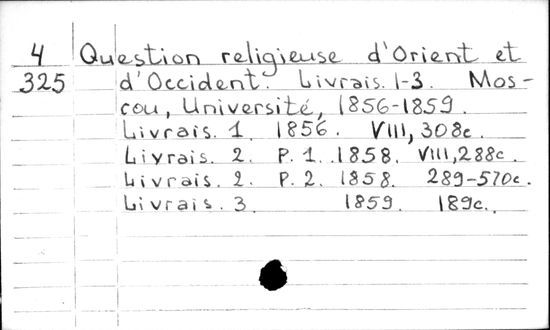 4 Question religieuse d'Orient et
325 d'Occident. Livrais. 1-3. Mos-
cou, Université, 1856-1859.
Livrais. 1. 1856. VIII, 308c.
Livrais. 2. P. 1. 1858. VIII, 288c.
Livrais. 2. P. 2. 1858. 289-570c.
Livrais. 3. 1859. 189c.